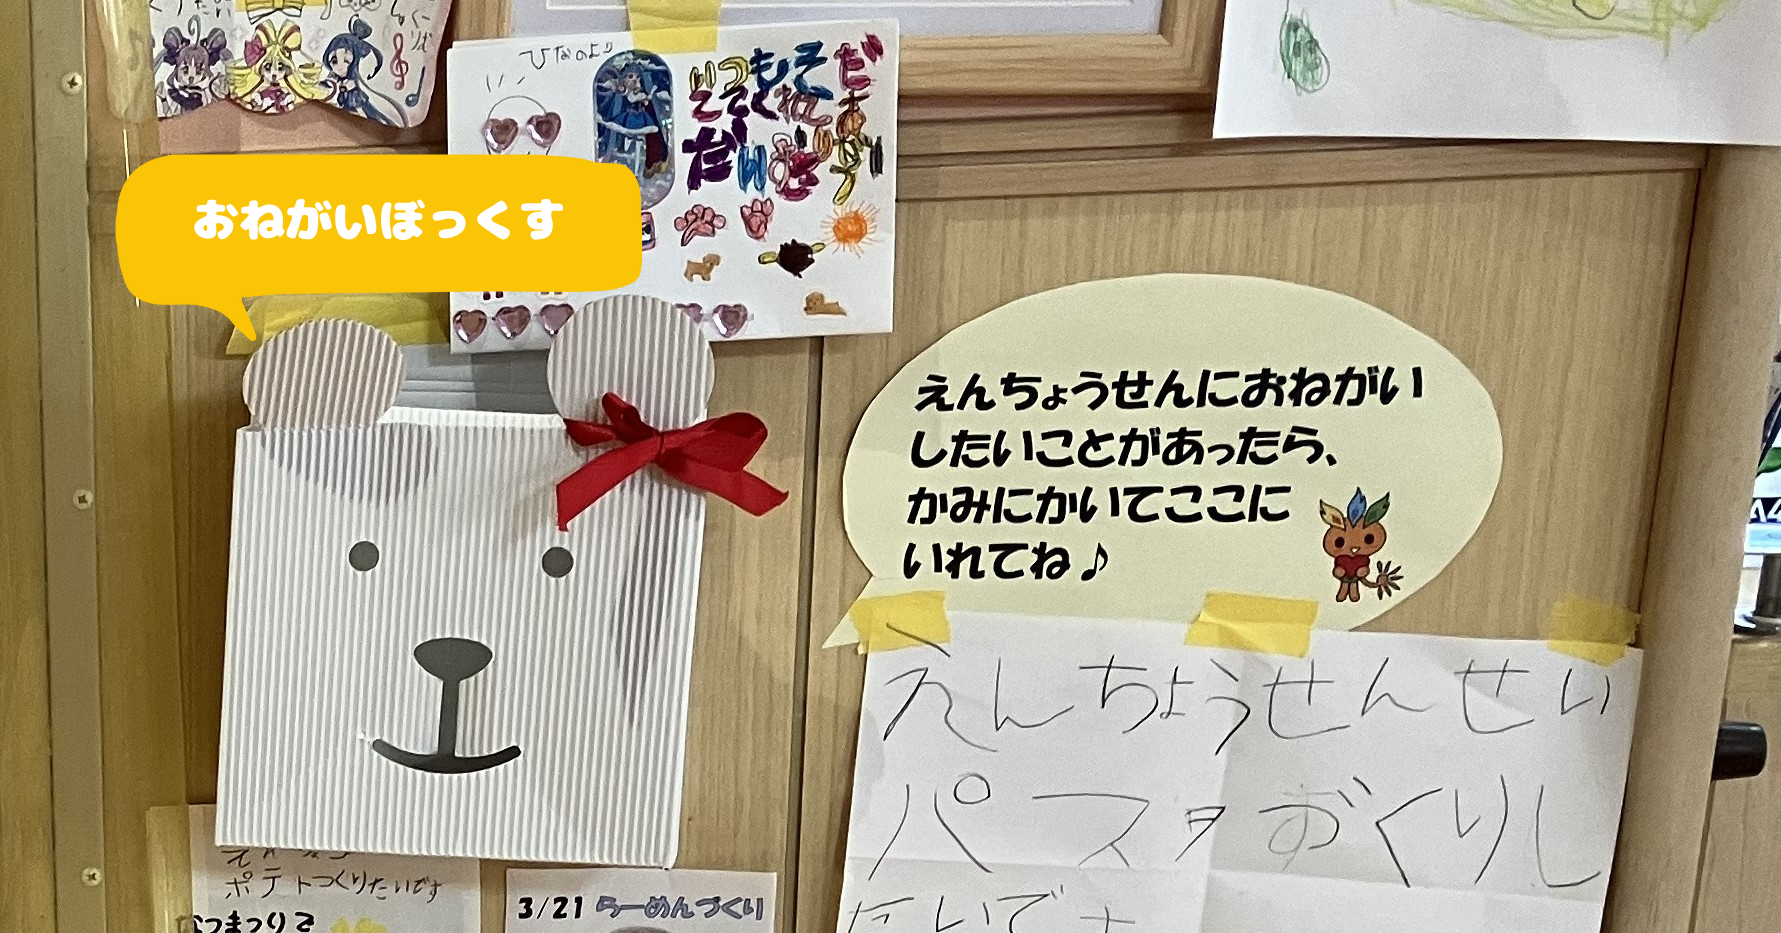 おねがいぼっくす
ひなのより
いつもそだ
ててくれ
えんちょうせんにおねがい
したいことがあったら、
かみにかいてここに
いれてね♪
えんちょうせんせい
パスタづくりし
たいです
ポテトつくりたいです
なつまつりで
3/21 らーめんづくり